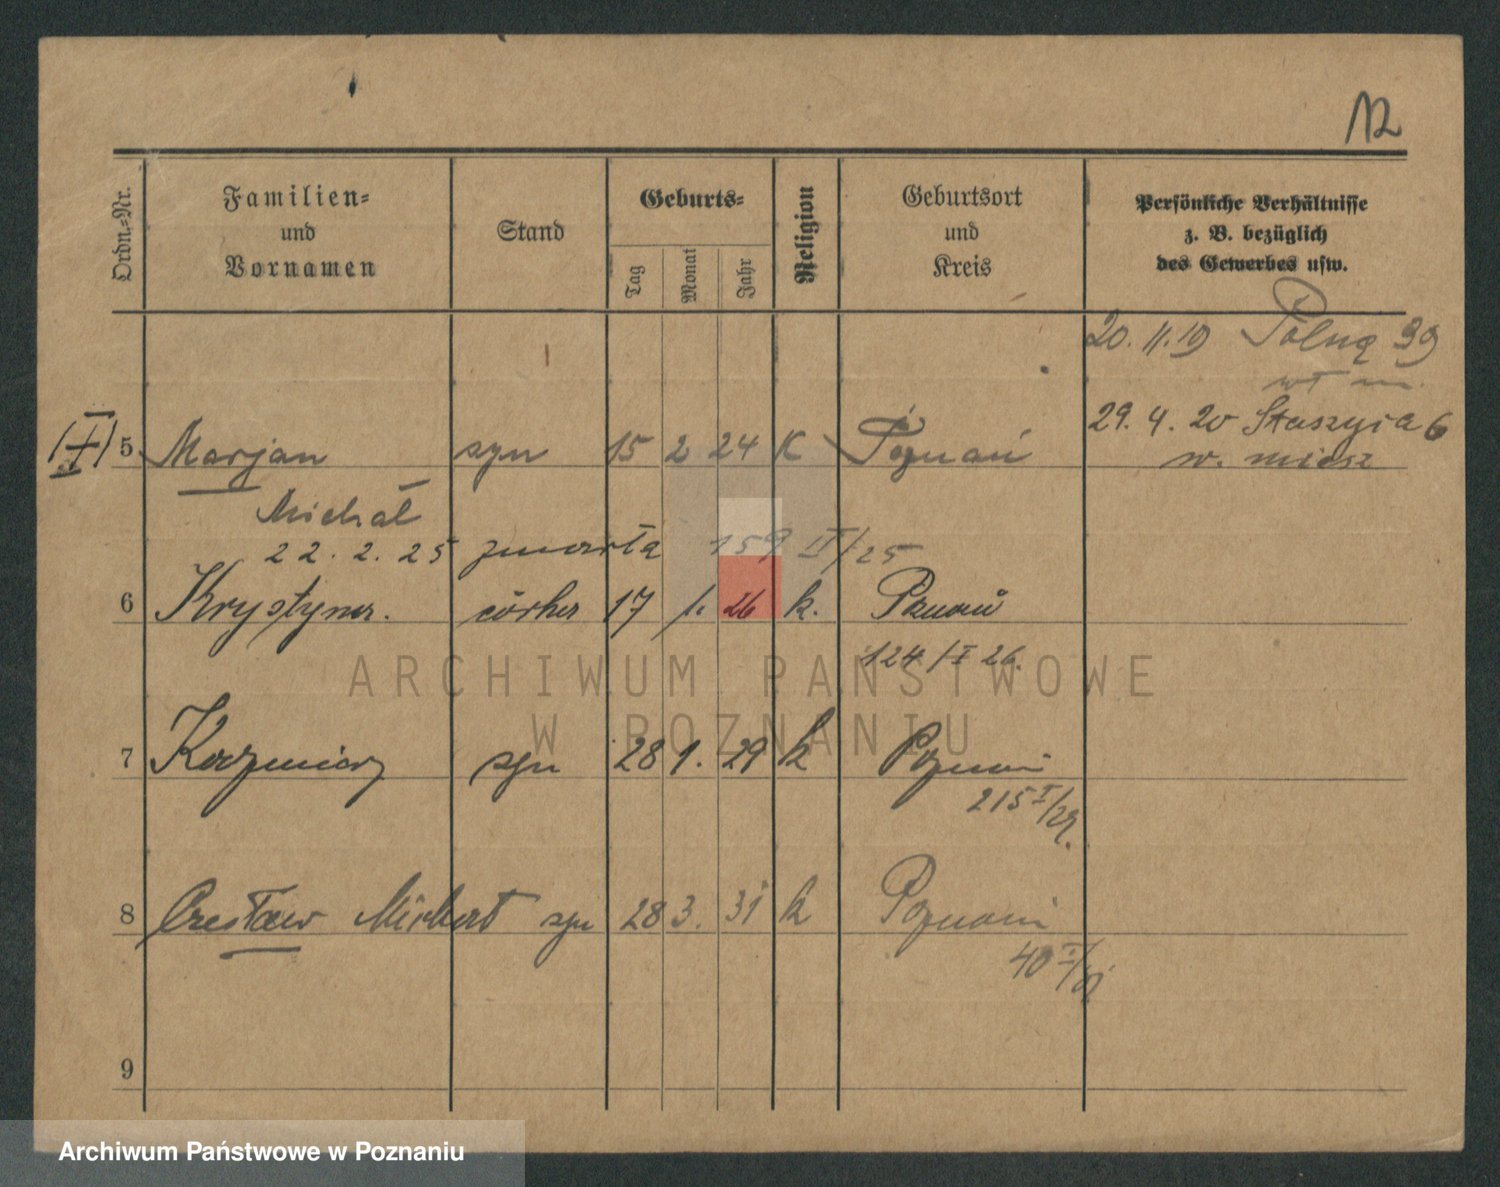 12
Ordn.-Nr.
Familien-
und
Vornamen
Stand
Geburts-
Tag
Monat
Jahr
Religion
Geburtsort
und
Kreis
Persönliche Verhältnisse
z. B. bezüglich
des Gewerbes usw.
20. 11. 19 Polną 39
wł m.
29. 4. 20 Staszyca 6
w. miesz
5 Marjan syn 15 2 24 K Poznań
Michał
22. 2. 25 zmarła 159 II/25
6 Krystyna. córka 17 1. 26 k. Poznań
124/I 26.
7 Kazimierz syn 28 1. 29 k Poznań
215 I/29.
8 Czesław syn 28 3. 31 k Poznań
40
9
ARCHIWUM PAŃSTWOWE
W POZNANIU
Archiwum Państwowe w Poznaniu